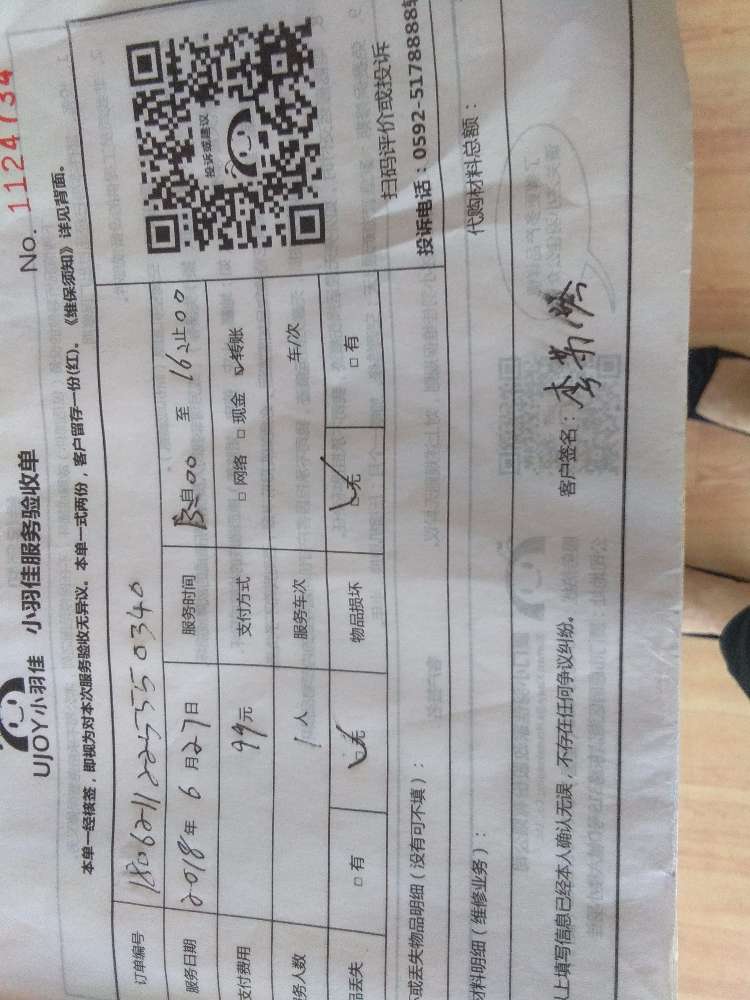 UJOY小羽佳 小羽佳服务验收单
No. 1124734
本单一经核签，即视为对本次服务验收无异议。本单一式两份，客户留存一份(红)。《维保须知》详见背面。
订单编号 180621122555 0340
服务日期 2018年6月27日 服务时间 自 00 至 16 止00
支付费用 99元 支付方式 □网络 □现金 ☑转账
务人数 1人 服务车次 车/次
品丢失 □有 ☑无 物品损坏 ☑无 □有
投诉或建议
扫码评价或投诉
投诉电话：0592-5178888转
或丢失物品明细（没有可不填）：
材料明细（维修业务）： 代购材料总额：
上填写信息已经本人确认无误，不存在任何争议纠纷。 客户签名：李